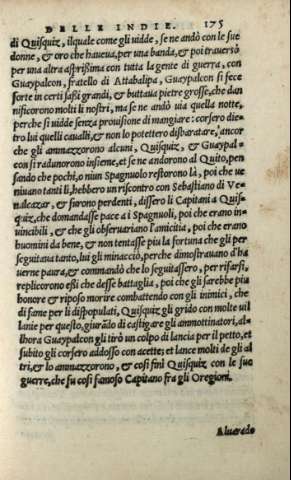 DELLE INDIE. 175
di Quisquiz, ilquale come gli uidde, se ne andò con le sue
donne, & oro che haueua, per una banda, & poi trauersò
per una altra asprissima con tutta la gente di guerra, con
Guaypalcon, fratello di Attabalipa, Guaypalcon si fece
forte in certi sassi grandi, & buttaua pietre grosse, che dan
nificorono molti li nostri, ma se ne andò uia quella notte,
perche si uidde senza prouisione di mangiare: corsero die-
tro lui quelli caualli, & non lo potettero disbaratare, ancor
che gli ammazzorono alcuni, Quisquiz, & Guaypal-
con si radunorono insieme, et se ne andorono al Quito, pen
sando che pochi, o niun Spagnuolo restorono là, poi che ue
niuano tanti lì, hebbero un riscontro con Sebastiano di Ve-
nalcazar, & furono perdenti, dissero li Capitani a Quis-
quiz, che domandasse pace a i Spagnuoli, poi che erano in-
uincibili, & che gli obseruariano l'amicitia, poi che erano
huomini da bene, & non tentasse piu la fortuna che gli per
seguitaua tanto, lui gli minacciò, perche dimostrauano d'ha
uerne paura, & commandò che lo seguitassero, per rifarsi,
replicorono essi che desse battaglia, poi che gli sarebbe piu
honore & riposo morire combattendo con gli inimici, che
di fame per li dispopulati, Quisquiz gli gridò con molte uil
lanie per questo, giurādo di castigare gli ammottinatori, al-
lhora Guaypalcon gli tirò un colpo di lancia per il petto, et
subito gli corsero addosso con acette; et lance molti de gli al
tri, & lo ammazzorono, & così finì Quisquiz con le sue
guerre, che fu così famoso Capitano fra gli Oregioni.
Aluarado